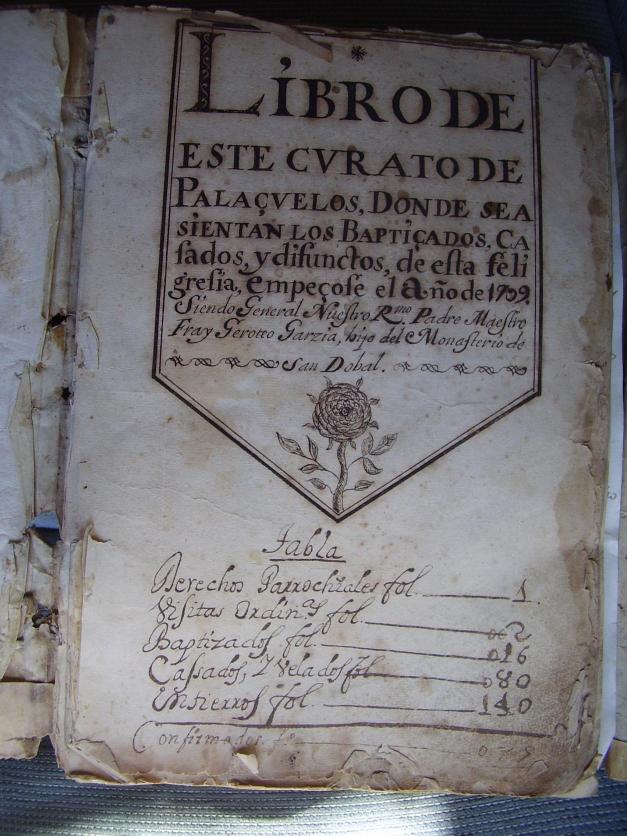 LIBRO DE
ESTE CVRATO DE
PALAÇVELOS, DONDE SEA
SIENTAN LOS BAPTIÇADOS, CA
sados, y difunctos, de esta feli
gresia, Empeçose el año de 1739.
Siendo General Nuestro Rmo. Padre Maestro
Fray Geroteo Garzia, hijo del Monasterio de
San Dobal.
Tabla
Derechos Parrochiales fol. 1
Visitas Ordins fol. 002
Baptizados fol. 016
Cassados, Y Velados fol 080
Entierros fol. 140
Confirmados